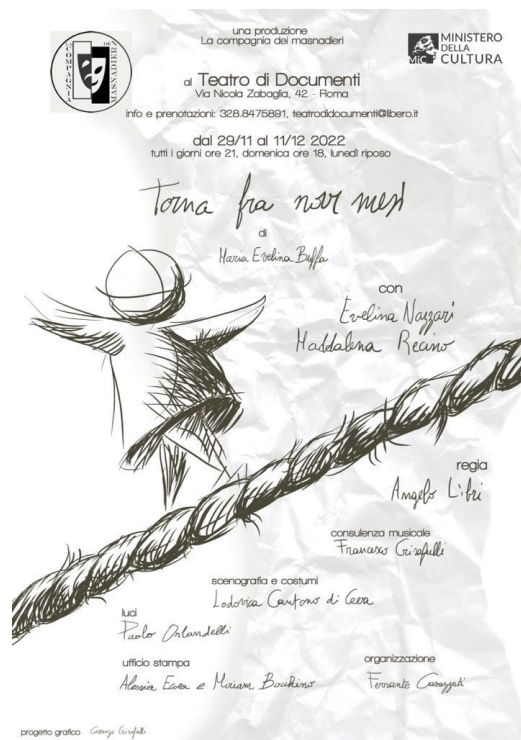 LA COMPAGNIA DEI MASNADIERI
una produzione
La compagnia dei masnadieri
MiC
MINISTERO
DELLA
CULTURA
al Teatro di Documenti
Via Nicola Zabaglia, 42 - Roma
info e prenotazioni: 328.8475891, teatrodidocumenti@libero.it
dal 29/11 al 11/12 2022
tutti i giorni ore 21, domenica ore 18, lunedì riposo
Torna fra nove mesi
di
Maria Evelina Buffa
con
Evelina Nazzari
Maddalena Recino
regia
Angelo Libri
consulenza musicale
Francesco Crisafulli
scenografia e costumi
Lodovica Cantono di Ceva
luci
Paolo Orlandelli
ufficio stampa
Alessia Ecora e Miriam Bocchino
organizzazione
Ferrante Cavazzuti
progetto grafico Crisafulli